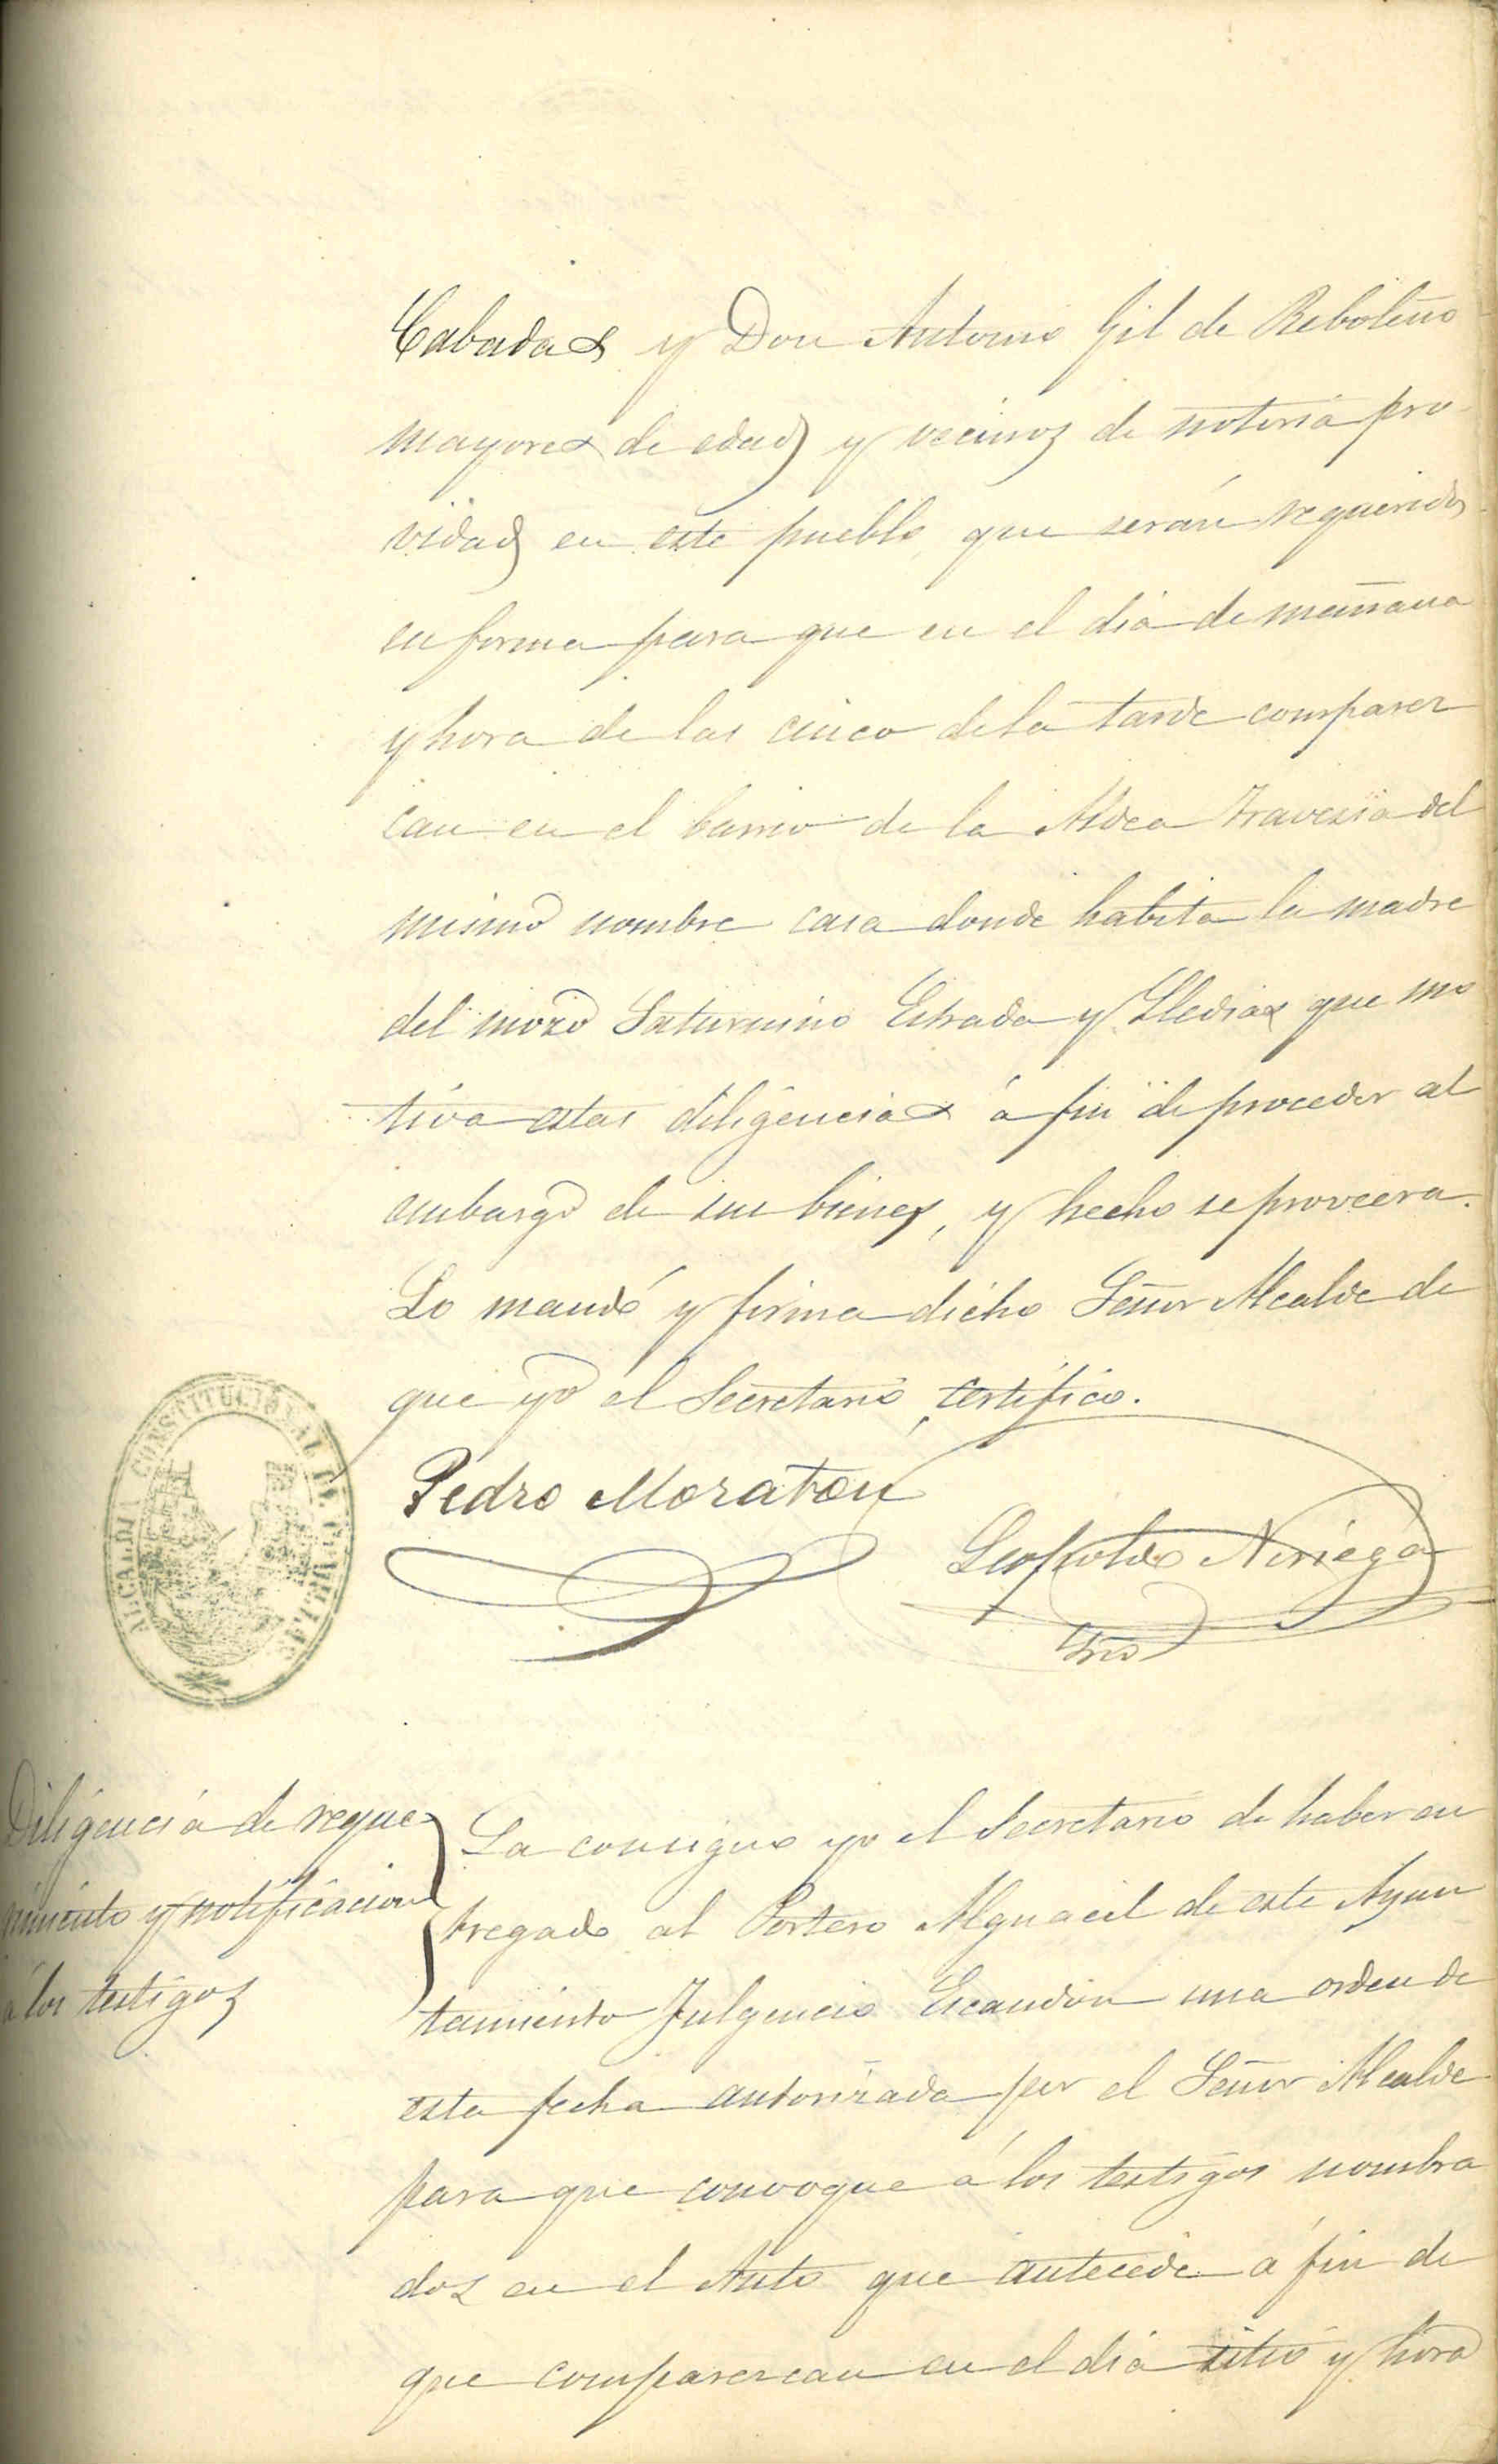 Cabadas y Don Antonio Gil de Reboleño
mayores de edad y vecinos de notoria pro-
vidad en este pueblo que serán requeridos
en forma para que en el dia de mañana
y hora de las cinco de la tarde comparez
can en el barrio de la Aldea Travesia del
mismo nombre casa donde habita la madre
del mozo Saturnino Estrada y Lledias que mo
tiva estas diligencias á fin de proceder al
embargo de sus bienes, y hecho se proveera.
Lo mandó y firma dicho Señor Alcalde de
que yo el Secretario, certifico.
ALCALDIA CONSTITUCIONAL DE
Pedro Moratón
Leopoldo Noriega
Srio
Diligencia de reque
rimiento y notificacion
á los testigos
La consigno yo el Secretario de haber en
tregado al Portero Alguacil de este Ayun
tamiento Fulgencio Escandón una orden de
esta fecha autorizada por el Señor Alcalde
para que convoque á los testigos nombra
dos en el Auto que antecede á fin de
que comparezcan en el dia sitio y hora